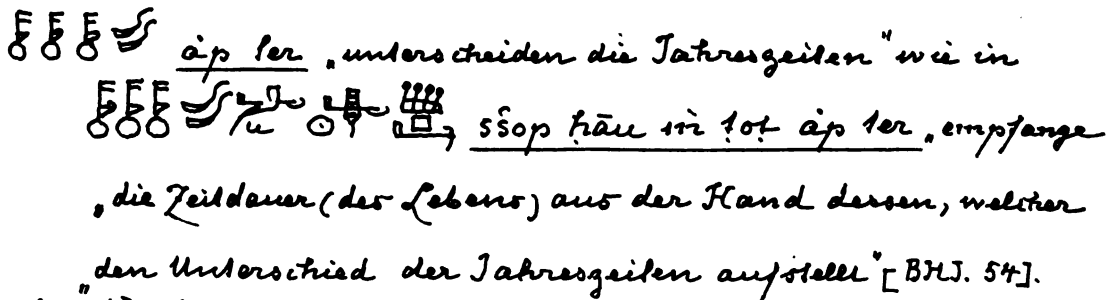 áp ter „unterscheiden die Jahreszeiten" wie in
sšop ḥāu in tot áp ter „empfange
„die Zeitdauer (des Lebens) aus der Hand dessen, welcher
„den Unterschied der Jahreszeiten aufstellt" [BHJ. 54].